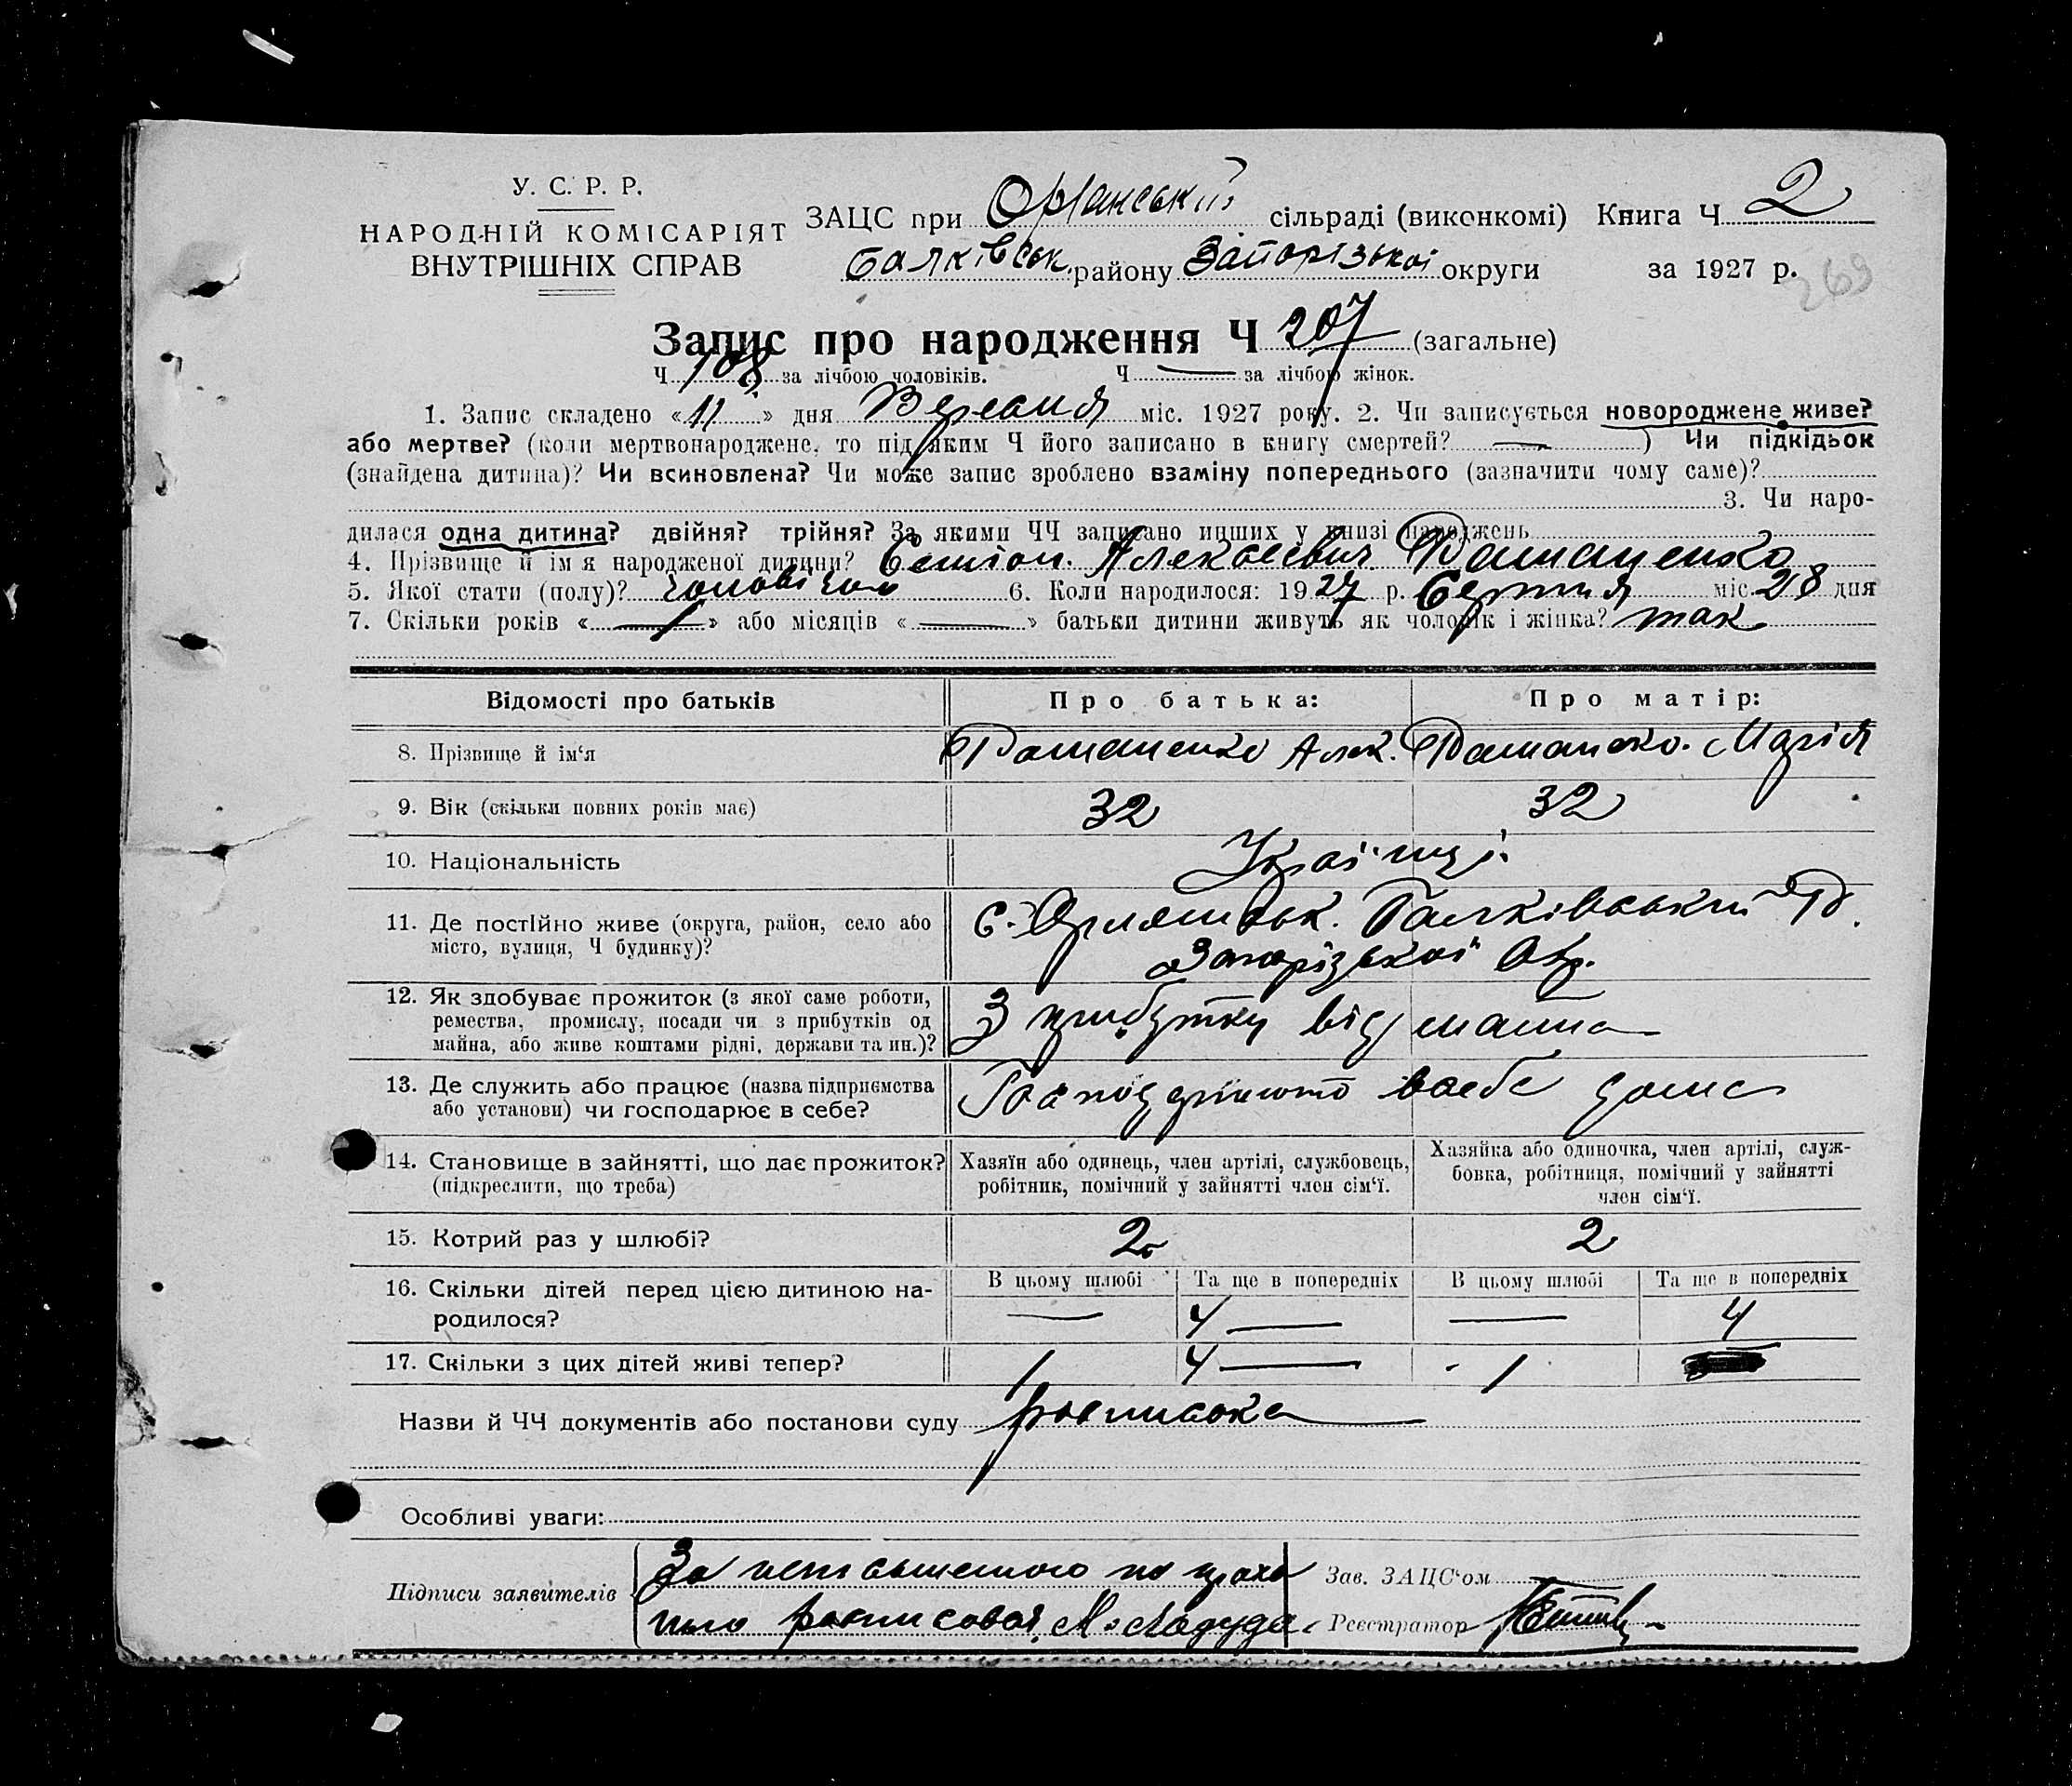 У. С. Р. Р.
НАРОДНІЙ КОМІСАРІЯТ
ВНУТРІШНІХ СПРАВ
ЗАЦС при сільраді (виконкомі) Книга Ч 2
Балківськ. району Запорізької округи за 1927 р.
269
Запис про народження Ч 207 (загальне)
Ч 108 за лічбою чоловіків. Ч — за лічбою жінок.
1. Запис складено « » дня Вересня міс. 1927 року. 2. Чи записується новороджене живе?
або мертве? (коли мертвонароджене, то під яким Ч його записано в книгу смертей? — ) Чи підкідьок
(знайдена дитина)? Чи всиновлена? Чи може запис зроблено взаміну попереднього (зазначити чому саме)?
3. Чи наро-
дилася одна дитина? двійня? трійня? За якими ЧЧ записано инших у книзі народжень
4. Прізвище й ім'я народженої дитини? Алексеевич
5. Якої стати (полу)? чоловічого 6. Коли народилося: 1927 р. Серпня міс. 28 дня
7. Скільки років « — » або місяців « — » батьки дитини живуть як чоловік і жінка? так
Відомості про батьків
Про батька:
Про матір:
8. Прізвище й ім'я
Алек.
Марія
9. Вік (скільки повних років має)
32
32
10. Національність
Украї'нці
11. Де постійно живе (округа, район, село або
місто, вулиця, Ч будинку)?
с. Балківський Р.
Запорізької Окр.
12. Як здобуває прожиток (з якої саме роботи,
ремества, промислу, посади чи з прибутків од
майна, або живе коштами рідні, держави та ин.)?
З прибутку від майна
13. Де служить або працює (назва підприємства
або установи) чи господарює в себе?
дома
14. Становище в зайнятті, що дає прожиток?
(підкреслити, що треба)
Хазяїн або одинець, член артілі, службовець,
робітник, помічний у зайнятті член сім'ї.
Хазяйка або одиночка, член артілі, служ-
бовка, робітниця, помічний у зайнятті
член сім'ї.
15. Котрий раз у шлюбі?
2
2
16. Скільки дітей перед цією дитиною на-
родилося?
В цьому шлюбі
Та ще в попередніх
В цьому шлюбі
Та ще в попередніх
—
4 —
—
4
17. Скільки з цих дітей живі тепер?
1
4 —
1
Назви й ЧЧ документів або постанови суду росписока
Особливі уваги:
Підписи заявителів
За
росписовая М.
Зав. ЗАЦС'ом
Реєстратор